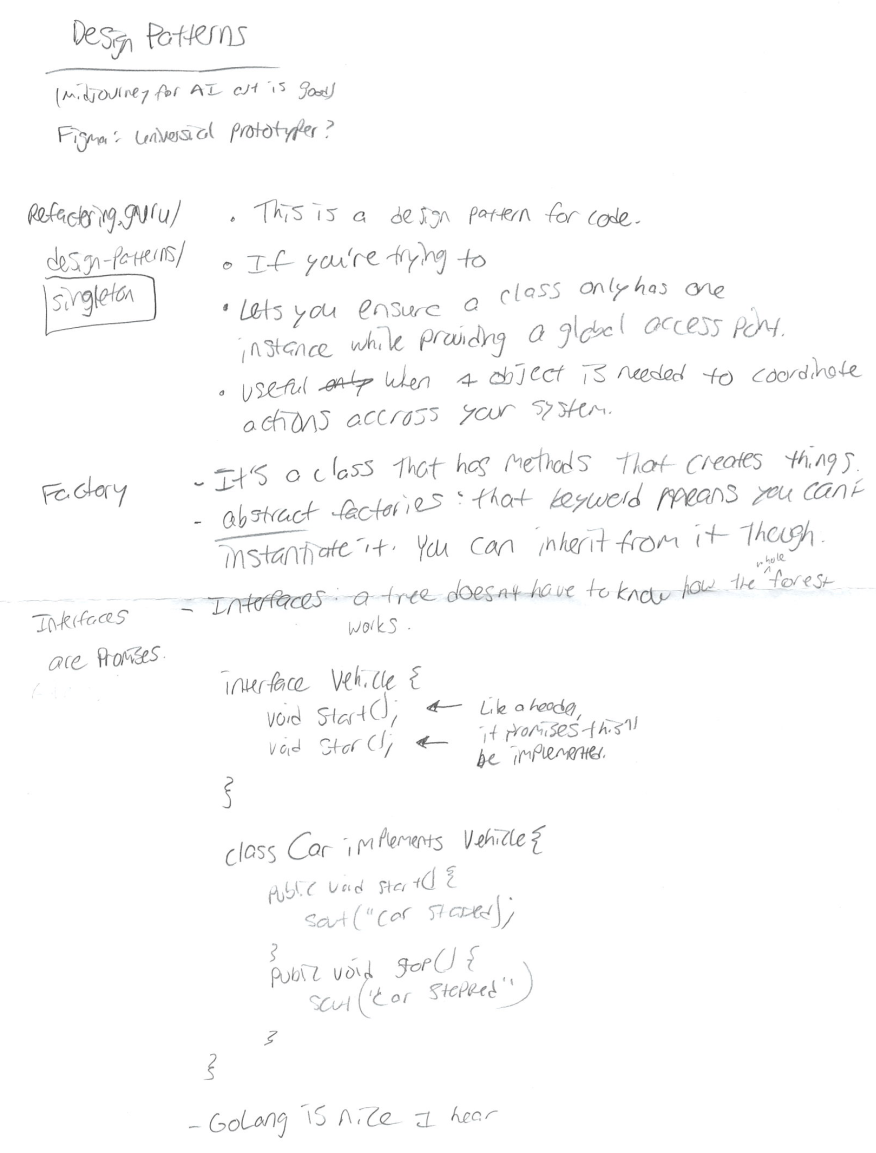 Design Patterns
(Midjourney for AI art is good)
Figma: Universial Prototyper?
Refactoring.guru/
design-patterns/
singleton
• This is a design pattern for code.
• If you're trying to
• Lets you ensure a class only has one
instance while providing a global access point.
• Useful only when 1 object is needed to coordinate
actions accross your system.
Factory
- It's a class that has methods that creates things.
- abstract factories: that keyword means you can't
instantiate it. You can inherit from it though.
Interfaces
are Promises.
- Interfaces: a tree doesn't have to know how the whole forest
works.
interface Vehicle {
void Start();
void Stop();
}
← Like a header,
it promises this'll
← be implemented.
class Car implements Vehicle {
public void start() {
sout("Car started);
}
public void stop() {
sout("Car stopped")
}
}
- GoLang is nice I hear